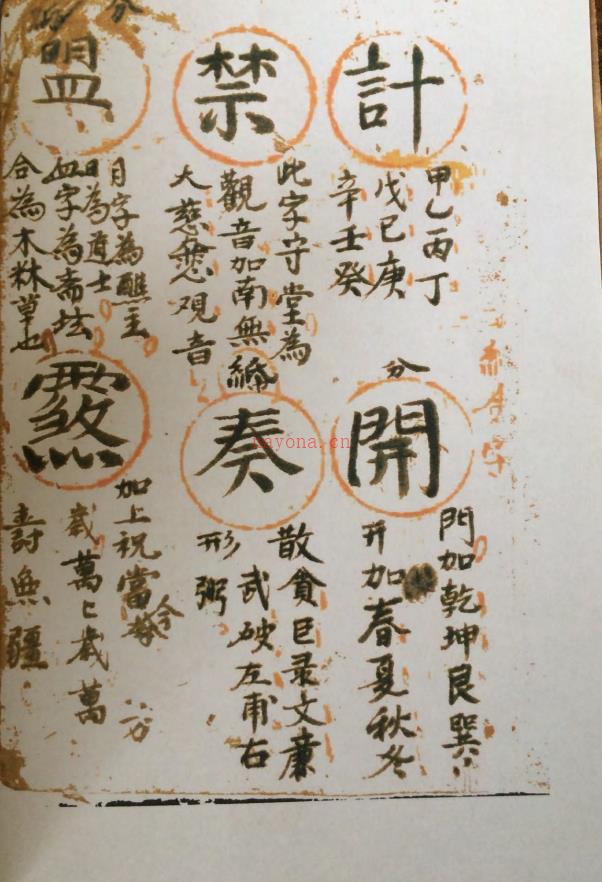 計
甲乙丙丁
戊己庚
辛壬癸
禁
此字守堂為
觀音加南無
大慈悲观音
盟
日為道士
合為木林草也
分
開
門加乾坤艮巽
开加春夏秋冬
奏
散貪巨录文廉
武破左甫右
形弼
加上祝當今
歲萬匕歲萬
壽無疆
nayona.cn